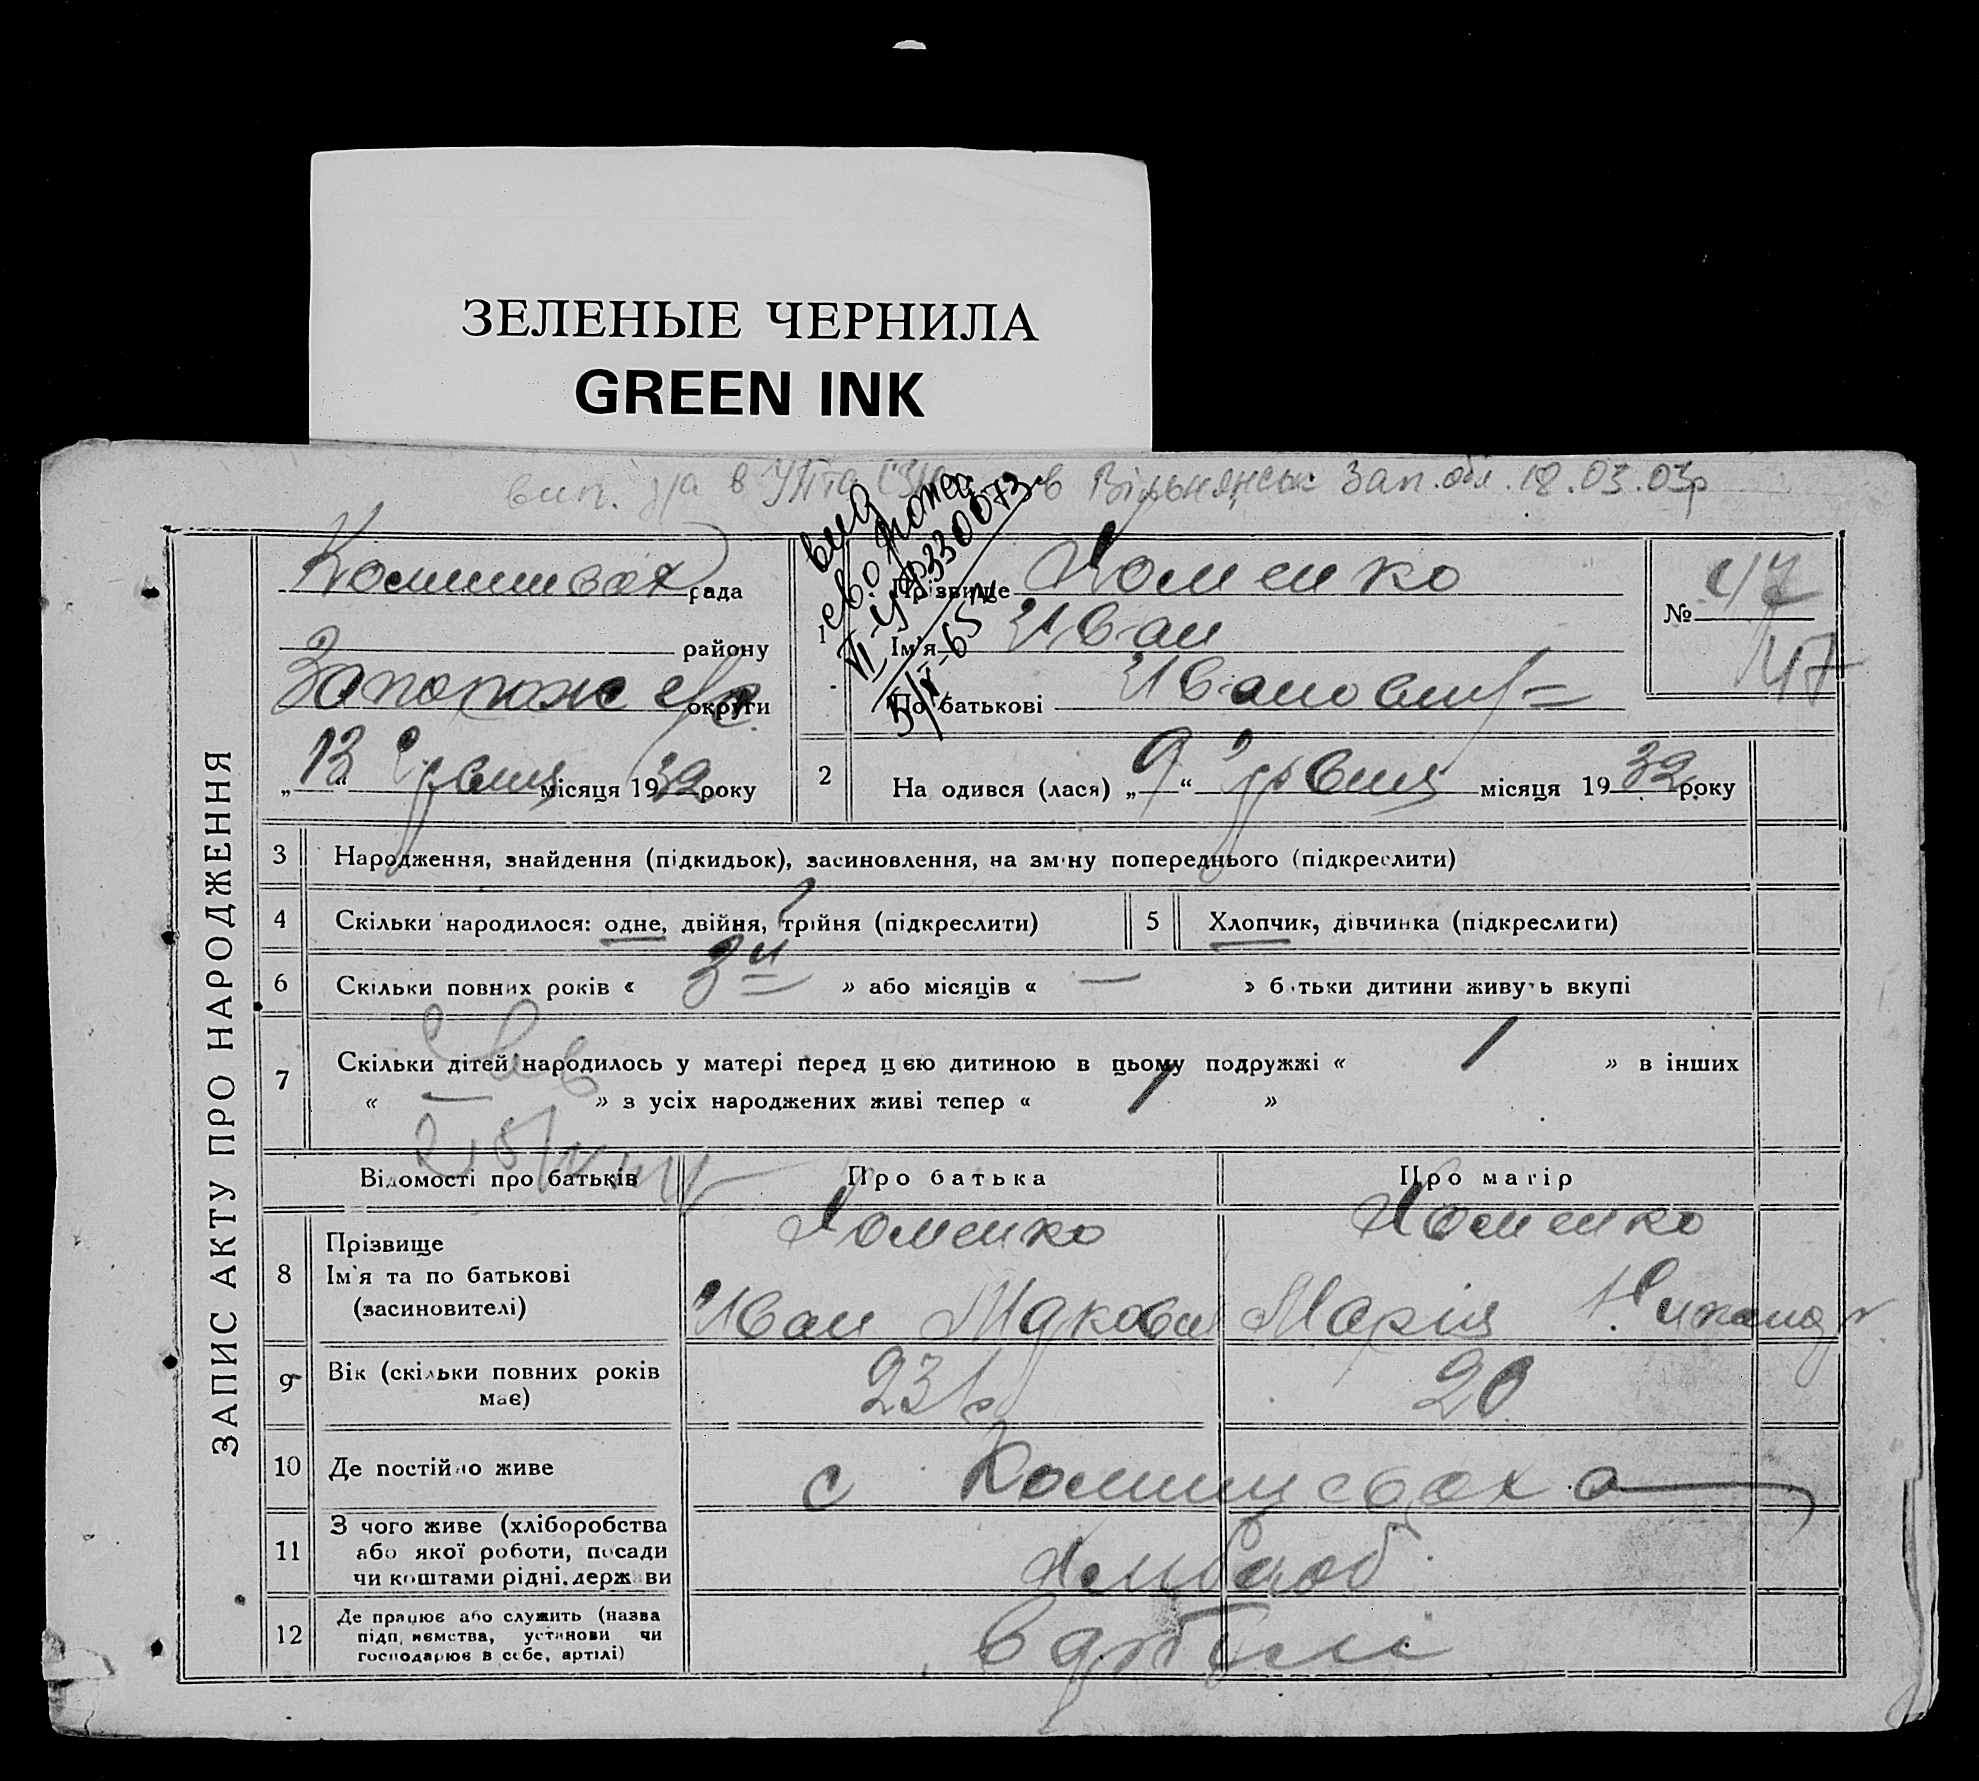 ЗЕЛЕНЫЕ ЧЕРНИЛА
GREEN INK
вип. в Вільнянськ Зап. обл. 18.03.03р
ЗАПИС АКТУ ПРО НАРОДЖЕННЯ
Комишвах рада
району
Запорож округи
„13“ Червня місяця 1932 року
1
Прізвище Хоменко
Ім'я Иван
По батькові Иванович
№ 47
47
2 На одився (лася) „9“ Червня місяця 1932 року
3 Народження, знайдення (підкидьок), засиновлення, на зміну попереднього (підкреслити)
4 Скільки народилося: одне, двійня, трійня (підкреслити)
5 Хлопчик, дівчинка (підкреслити)
6 Скільки повних років « 3и » або місяців « — » батьки дитини живуть вкупі
7 Скільки дітей народилось у матері перед цією дитиною в цьому подружжі « 1 » в інших
« — » з усіх народжених живі тепер « 1 »
Відомості про батьків Про батька Про матір
8 Прізвище
Ім'я та по батькові
(засиновителі)
Хоменко
Иван Яков
Хоменко
Марія
9 Вік (скільки повних років має)
23
20
10 Де постійно живе
с Комишеваха
11 З чого живе (хліборобства
або якої роботи, посади
чи коштами рідні, держави
Хлібороб
12 Де працює або служить (назва
підприємства, установи чи
господарює в себе, артілі)
в артілі